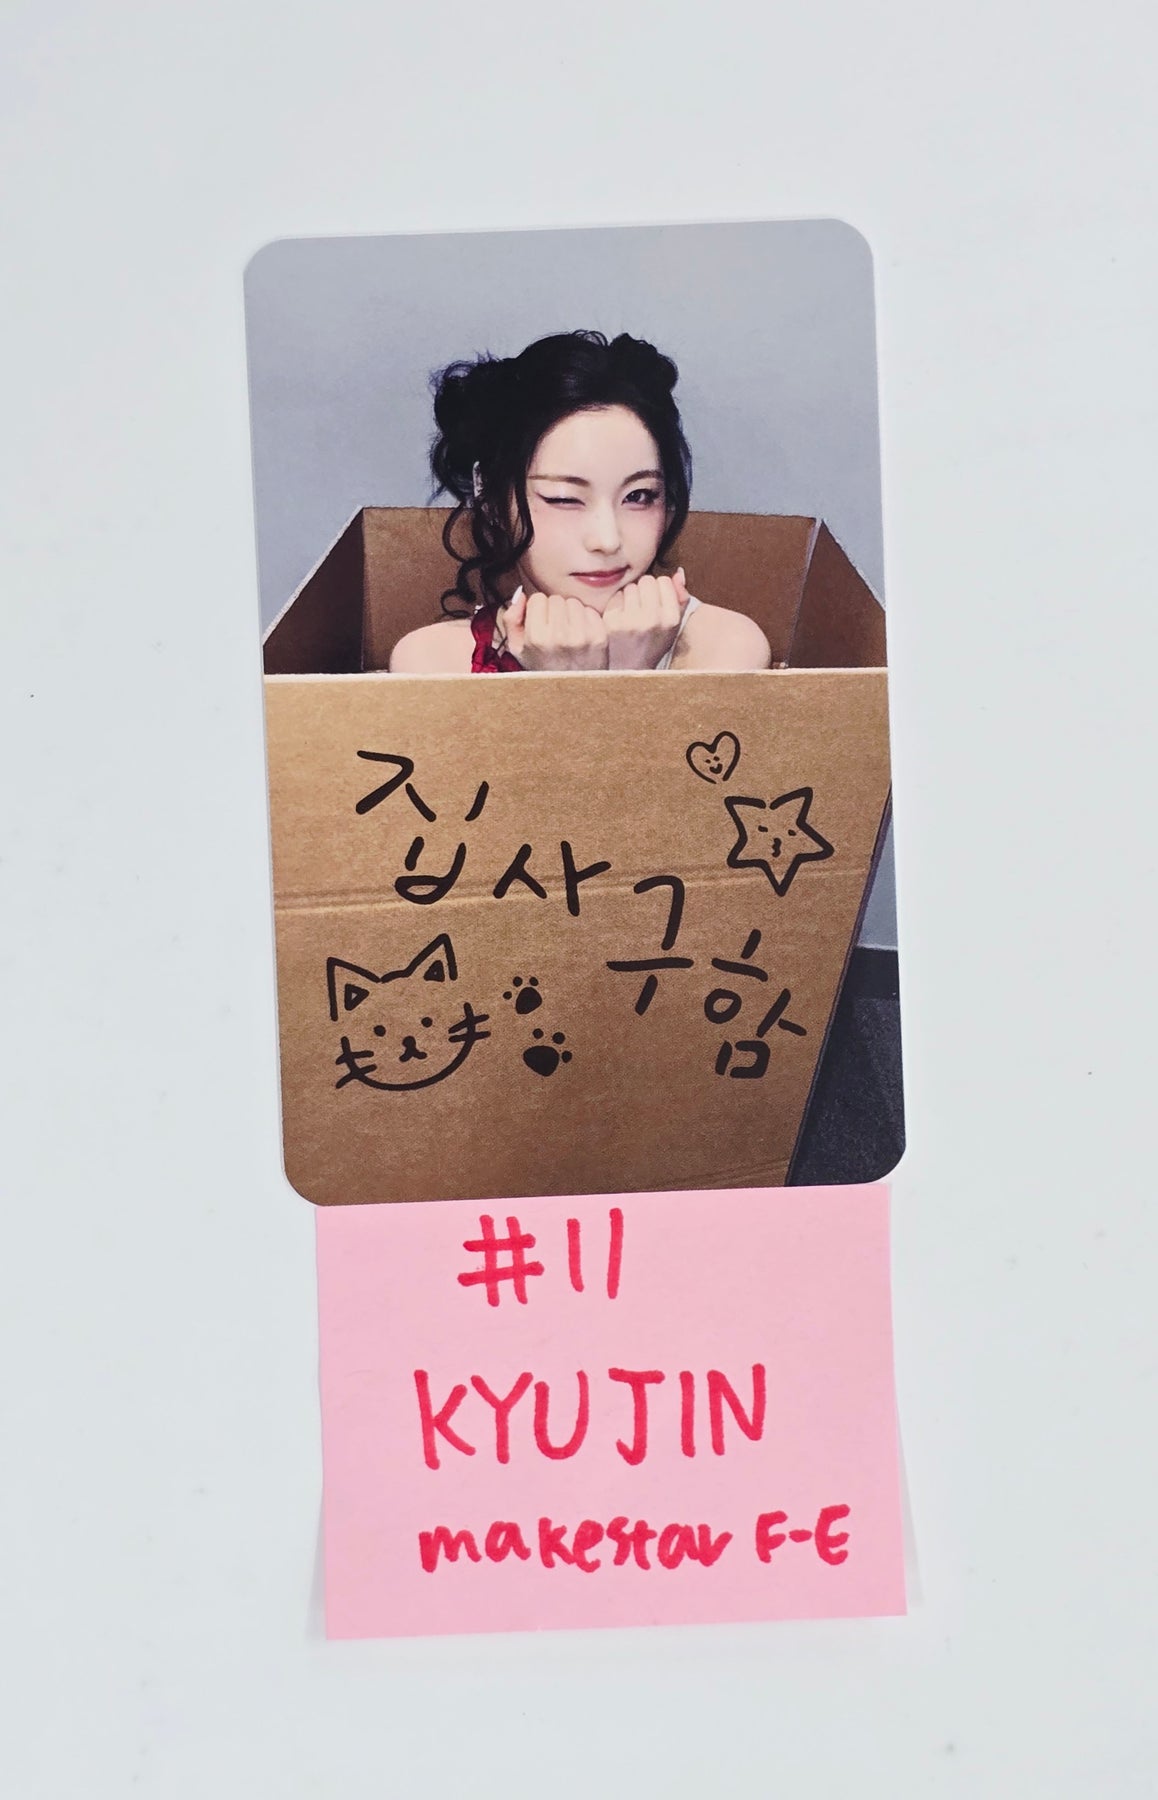 집사
구함
#11
KYUJIN
makestar F-E